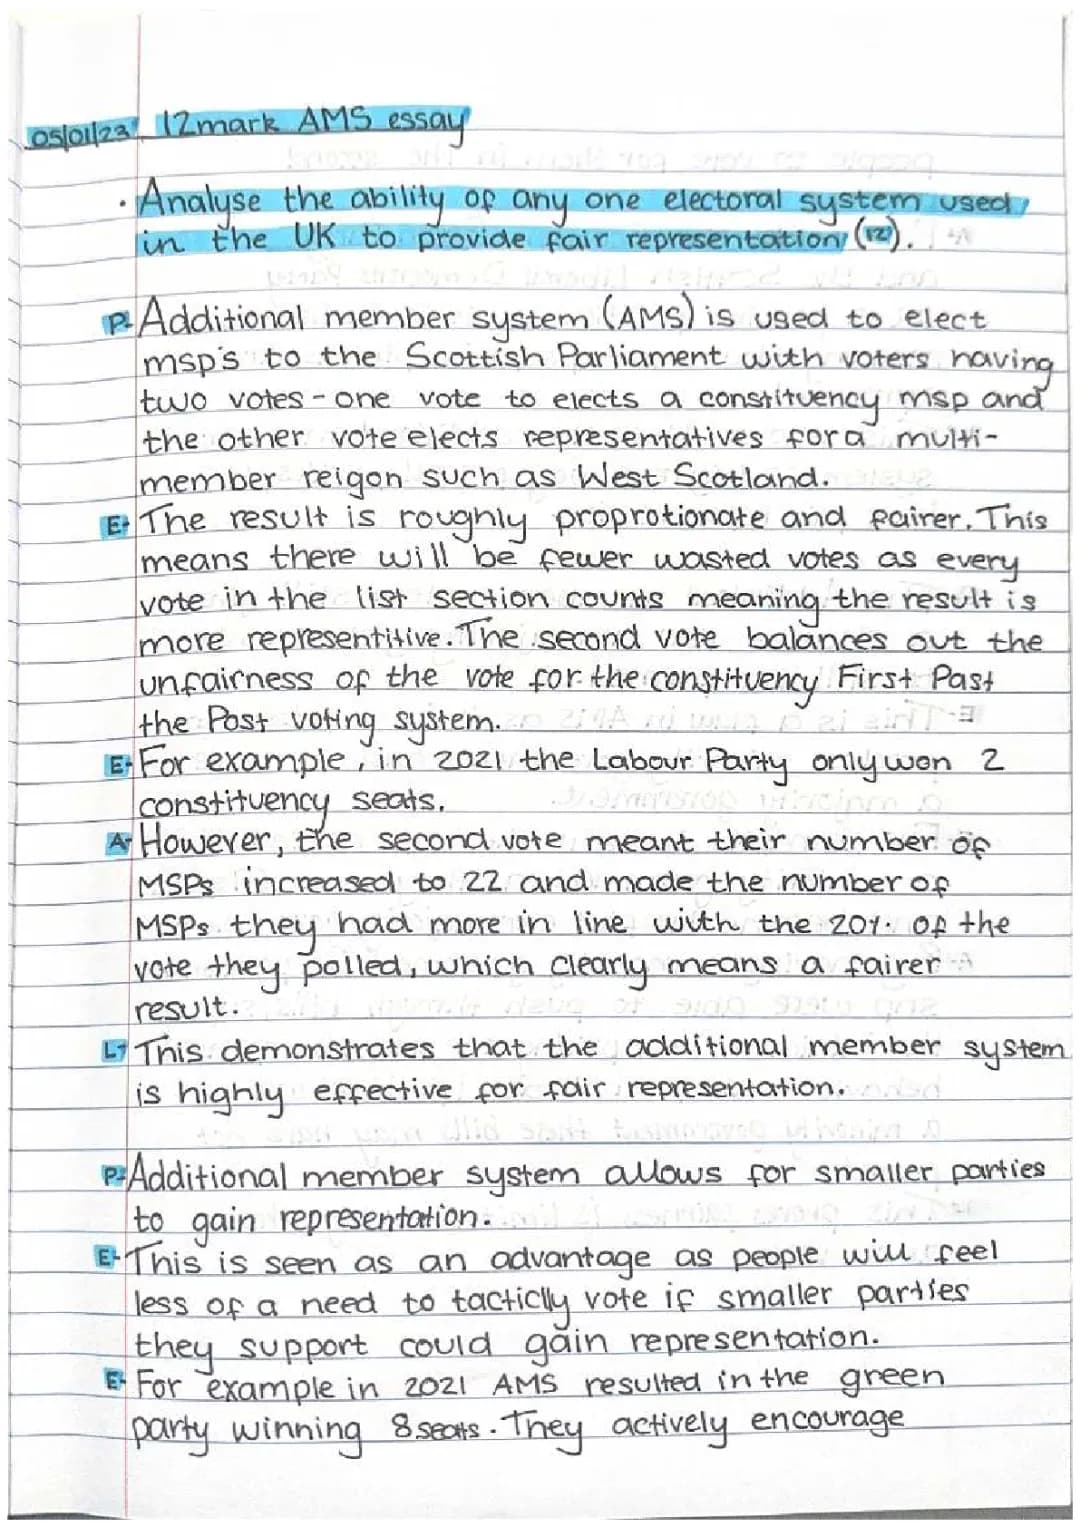 05/01/23 12mark AMS essay
· Analyse the ability of any one electoral system used
in the UK to provide fair representation (12).
P- Additional member system (AMS) is used to elect
msp's to the Scottish Parliament with voters having
two votes - one vote to elects a constituency msp and
the other vote elects representatives for a multi-
member reigon such as West Scotland.
E- The result is roughly proprotionate and fairer. This
means there will be fewer wasted votes as every
vote in the list section counts meaning the result is
more representitive. The second vote balances out the
unfairness of the vote for the constituency First Past
the Post voting system.
E- For example, in 2021 the Labour Party only won 2
constituency seats.
A- However, the second vote meant their number of
MSPs increased to 22 and made the number of
MSPs they had more in line with the 20% of the
vote they polled, which clearly means a fairer
result.
L- This demonstrates that the additional member system
is highly effective for fair representation.
P- Additional member system allows for smaller parties
to gain representation.
E- This is seen as an advantage as people will feel
less of a need to tacticlly vote if smaller parties
they support could gain representation.
E- For example in 2021 AMS resulted in the green
party winning 8 seats. They actively encourage